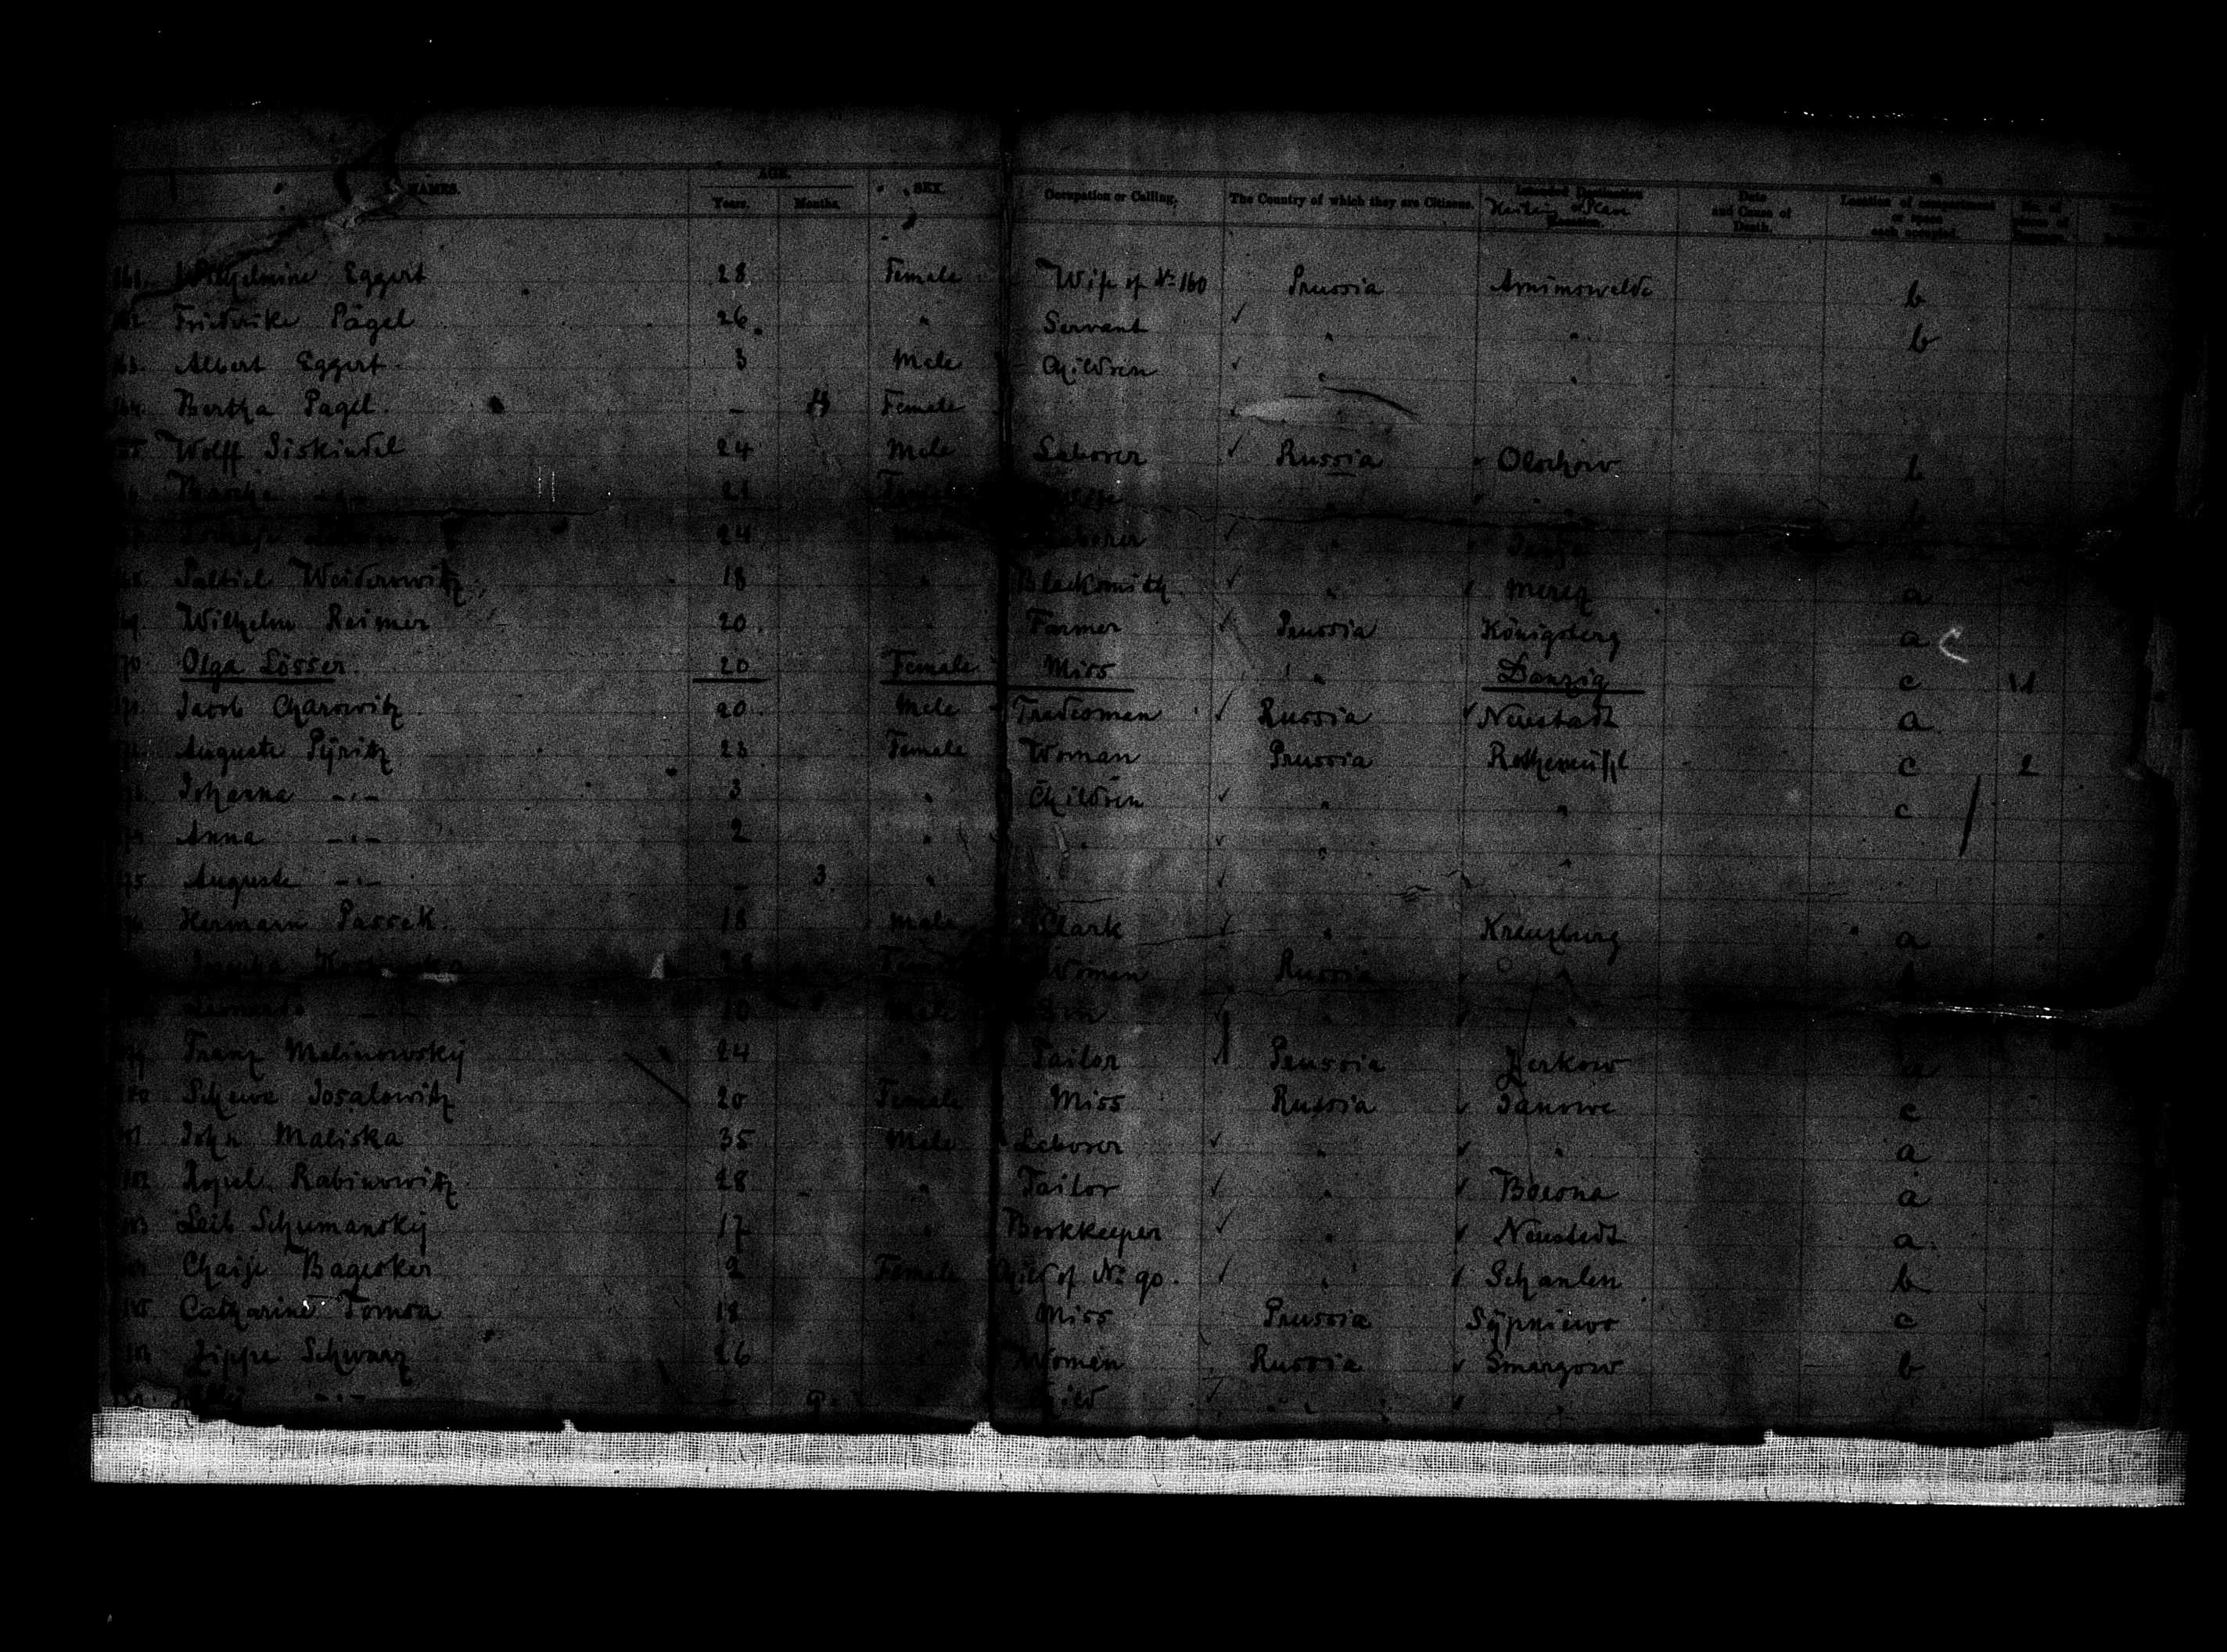 NAMES. AGE. Years. Months. SEX. Occupation or Calling. The Country of which they are Citizens. Intended Destination Place Date and Cause of Death. Location of compartment or space each occupied. No. of
161. Wilhelmine Eggert 28 Female Wife of No 160 Prussia Arnimswalde b
162 Friederike Pägel 26 " Servant " " b
163. Albert Eggert 3 Male Children " "
164. Bertha Pagel. - Female
165 Wolff Siskindel 24 Male Laborer Russia Olschow b
21 Female
24 Male Laborer "
168 Paltiel Weiderowitz 18 " Blacksmith " Mereg a
169. Wilhelm Reimer 20 " Farmer Prussia Königsberg a
170 Olga Lösser. 20 Female Miss " Danzig c 1
171. Jacob Charowitz 20 Male Tradesman Russia Neustadt a
172. Auguste Pÿritz 23 Female Woman Prussia Rothemühl c 2
173. Johanna -"- 3 " Children " " c
174. Anna -"- 2 " " " "
175 Auguste -"- - 3 "
176 Hermann Passek. 18 Male Clark " Kreuzburg a
28 Female Woman Russia "
10 Male Son " "
179 Franz Malinowskÿ 24 " Tailor Prussia Zerkow a
180 Schewe Josalowitz 20 Female Miss Russia Janowe c
181 John Maliska 35 Male Laborer " " a
182 Rabinowitz 28 " Tailor " a
183 Leib Schumanskÿ 17 " Bookkeeper " Neustadt a
184 Chaije Bagesker 2 Female Child of No 90. " Schanlen b
185 Catharine Tomsa 18 " Miss Prussia Sÿpniewo c
186 Zippe Schwarz 26 " Woman Russia Smargow b
-"- - 9. " Child " "